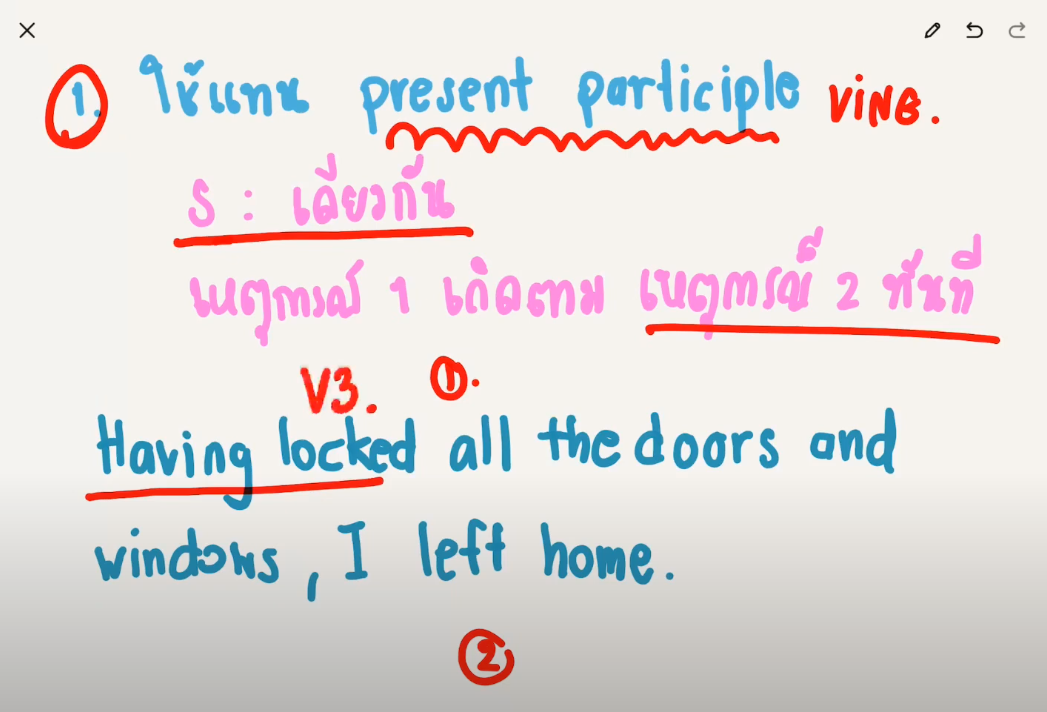 1. ใช้แทน present participle VING.
S : เดียวกัน
เหตุการณ์ 1 เกิดตาม เหตุการณ์ 2 ทันที
V3. 1.
Having locked all the doors and
windows, I left home.
2